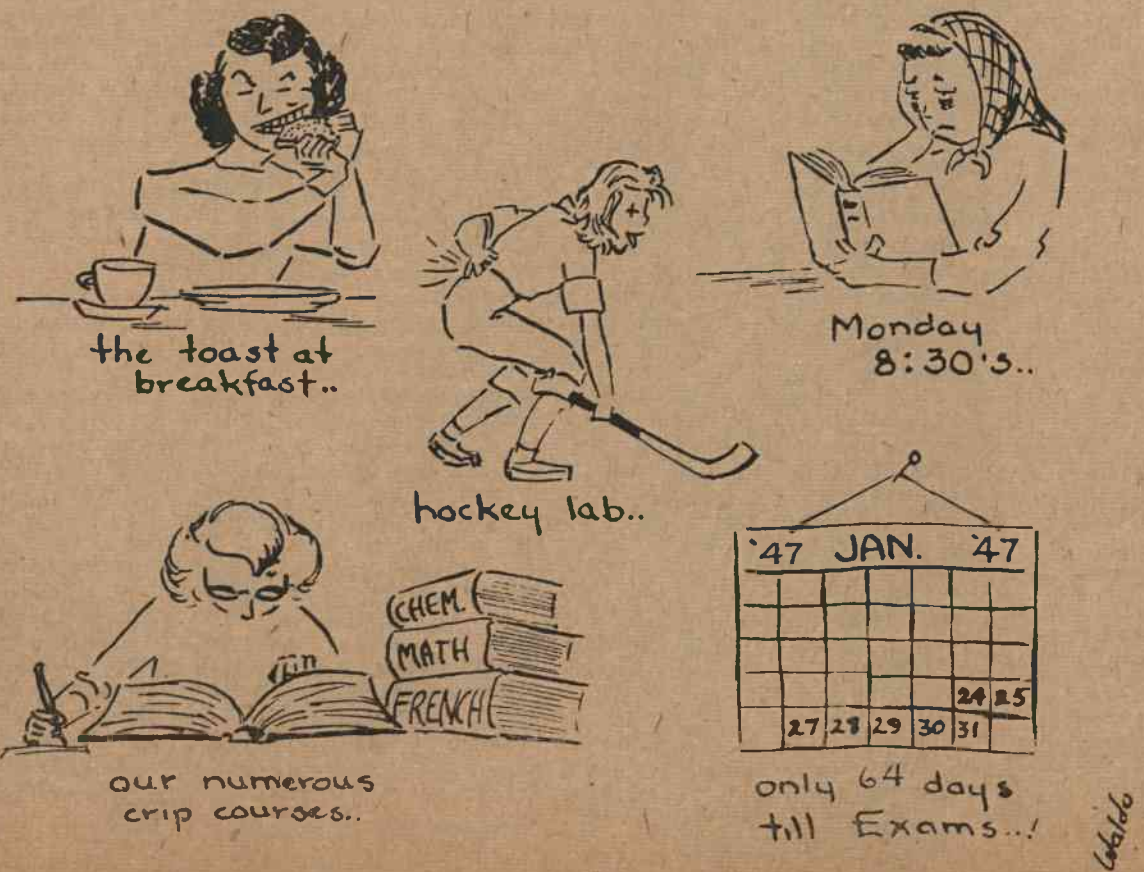 the toast at
breakfast..
Monday
8:30's..
hockey lab..
CHEM.
MATH
FRENCH
our numerous
crip courses..
'47 JAN. '47
24 25
27 28 29 30 31
only 64 days
till Exams...!
Waldo